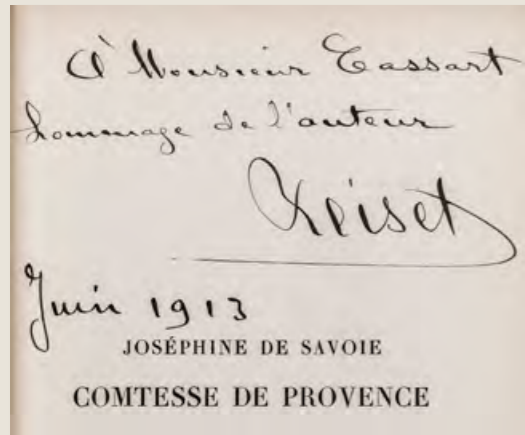 A Monsieur Tassart
hommage de l'auteur
Reiset
Juin 1913
JOSÉPHINE DE SAVOIE
COMTESSE DE PROVENCE